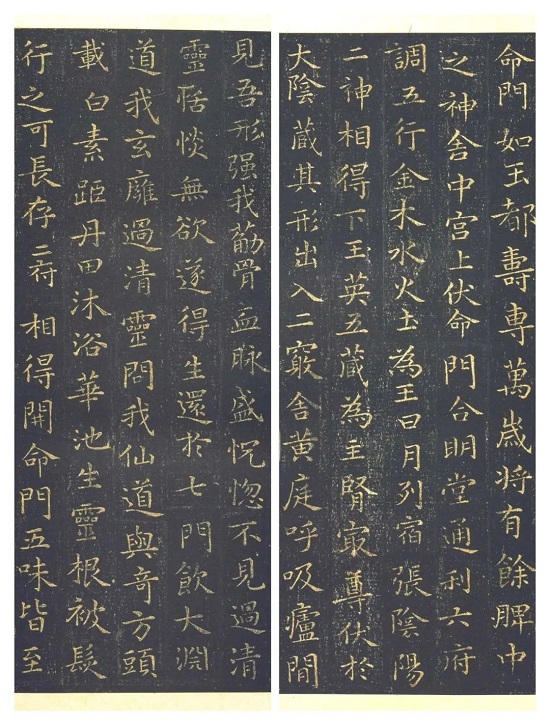 命門如玉都壽專萬歳将有餘脾中
之神舍中宫上伏命門合明堂通利六府
調五行金木水火土為王日月列宿張陰陽
二神相得下玉英五藏為主腎㝡尊伏於
大陰藏其形出入二竅舍黄庭呼吸廬間
見吾形强我筋骨血脉盛怳惚不見過清
靈恬惔無欲遂得生還於七門飲大渊
道我玄廱過清靈問我仙道與奇方頭
載白素距丹田沐浴華池生靈根被髮
行之可長存二府相得開命門五味皆至